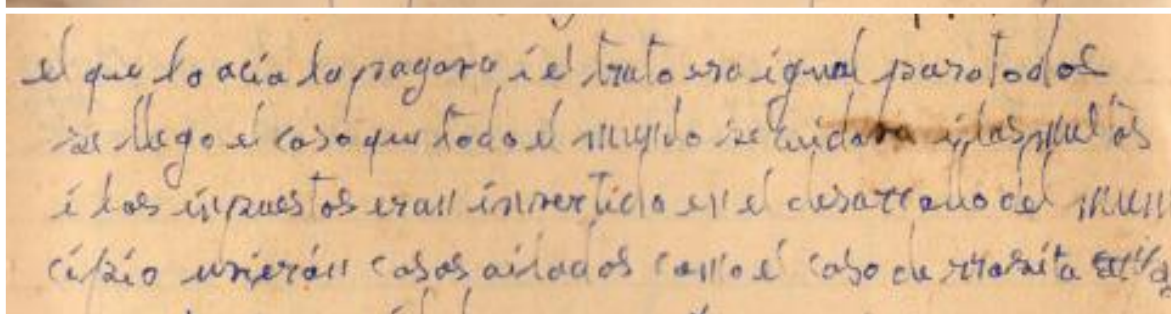 el que lo acia la pagara i el trato era igual para todos
se llego el caso que todo el mundo se cuidara i las multas
i los inpuestos eran invertido en el desarrollo del mun
cipio uvieron casos ailados como el caso de rrosita